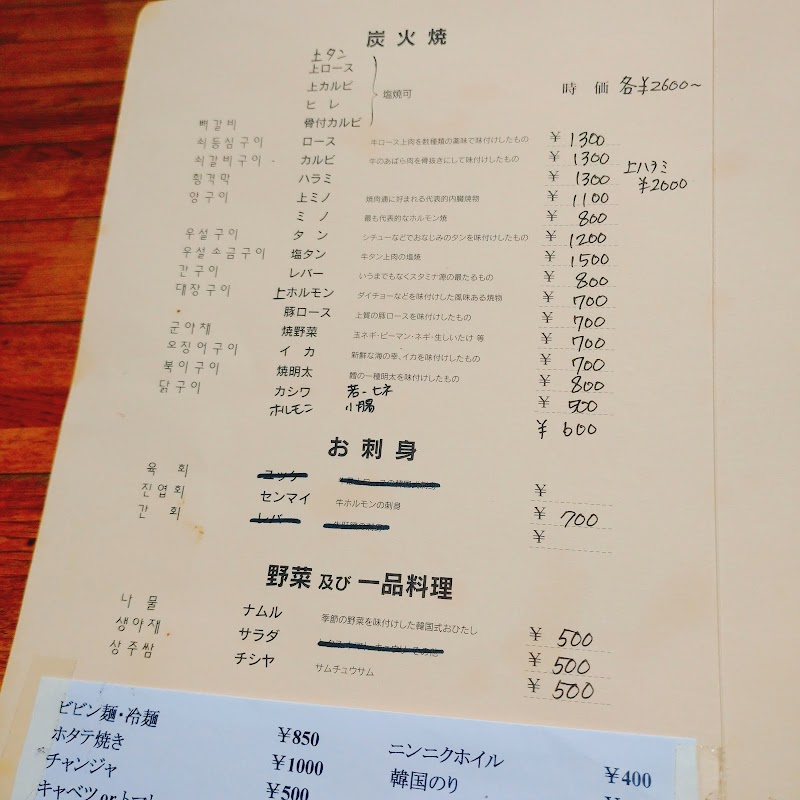 炭火焼
上タン
上ロース
上カルビ 塩焼可 時価 各¥2600~
ヒレ
뼈갈비 骨付カルビ
쇠등심구이 ロース 牛ロース上肉を数種類の薬味で味付けしたもの ¥1300
쇠갈비구이 カルビ 牛のあばら肉を骨抜きにして味付けしたもの ¥1300
횡격막 ハラミ ¥1300 上ハラミ ¥2000
양구이 上ミノ 焼肉通に好まれる代表的内臓焼物 ¥1100
ミノ 最も代表的なホルモン焼 ¥800
우설구이 タン シチューなどでおなじみのタンを味付けしたもの ¥1200
우설소금구이 塩タン 牛タン上肉の塩焼 ¥1500
간구이 レバー いうまでもなくスタミナ源の最たるもの ¥800
대장구이 上ホルモン ダイチョーなどを味付けした風味ある焼物 ¥700
豚ロース 上質の豚ロースを味付けしたもの ¥700
군야채 焼野菜 玉ネギ・ピーマン・ネギ・生しいたけ 等 ¥700
오징어구이 イカ 新鮮な海の幸、イカを味付けしたもの ¥700
북어구이 焼明太 鱈の一種明太を味付けしたもの ¥800
닭구이 カシワ 若・ヒネ ¥500
ホルモン 小腸 ¥600
お刺身
육회 ユッケ ¥
진엽회 センマイ 牛ホルモンの刺身 ¥700
간회 レバー ¥
野菜及び一品料理
나물 ナムル 季節の野菜を味付けした韓国式おひたし ¥500
생야채 サラダ ¥500
상추쌈 チシヤ サムチュウサム ¥500
ビビン麺・冷麺 ¥850 ニンニクホイル ¥400
ホタテ焼き ¥1000 韓国のり
チャンジャ ¥500
キャベツorトマト